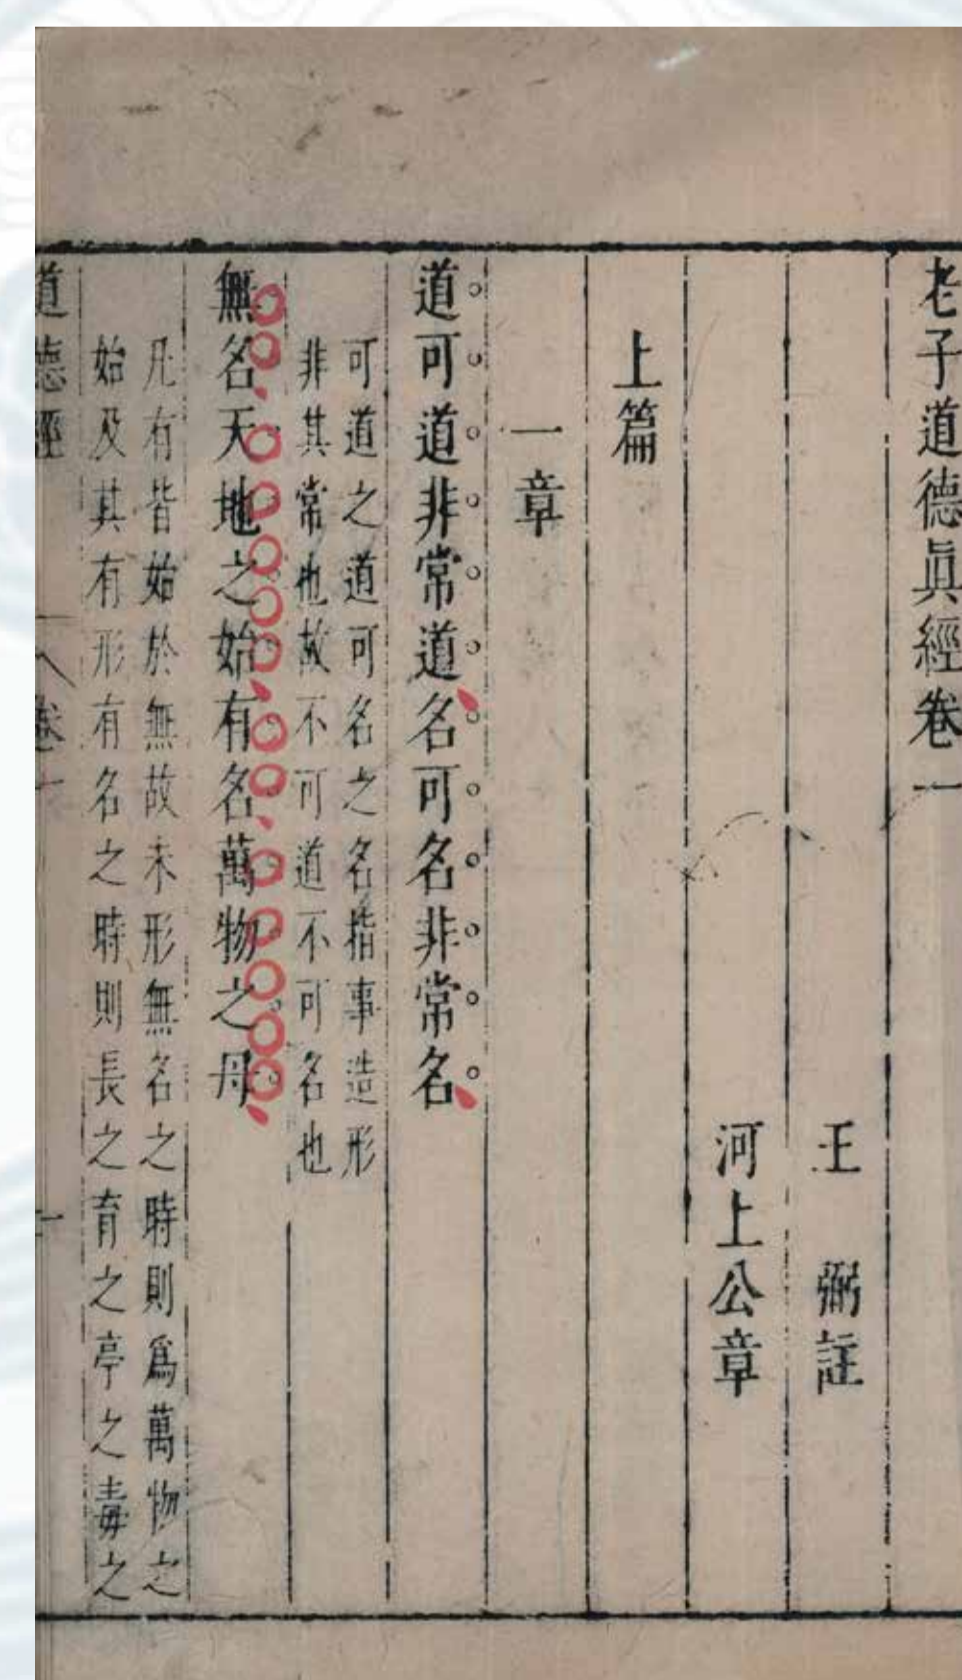 老子道德眞經卷一
王弼註
河上公章
上篇
一章
道可道非常道名可名非常名
可道之道可名之名指事造形
非其常也故不可道不可名也
無名天地之始有名萬物之母
凡有皆始於無故未形無名之時則爲萬物之
始及其有形有名之時則長之育之亭之毒之
道德經 卷一 一